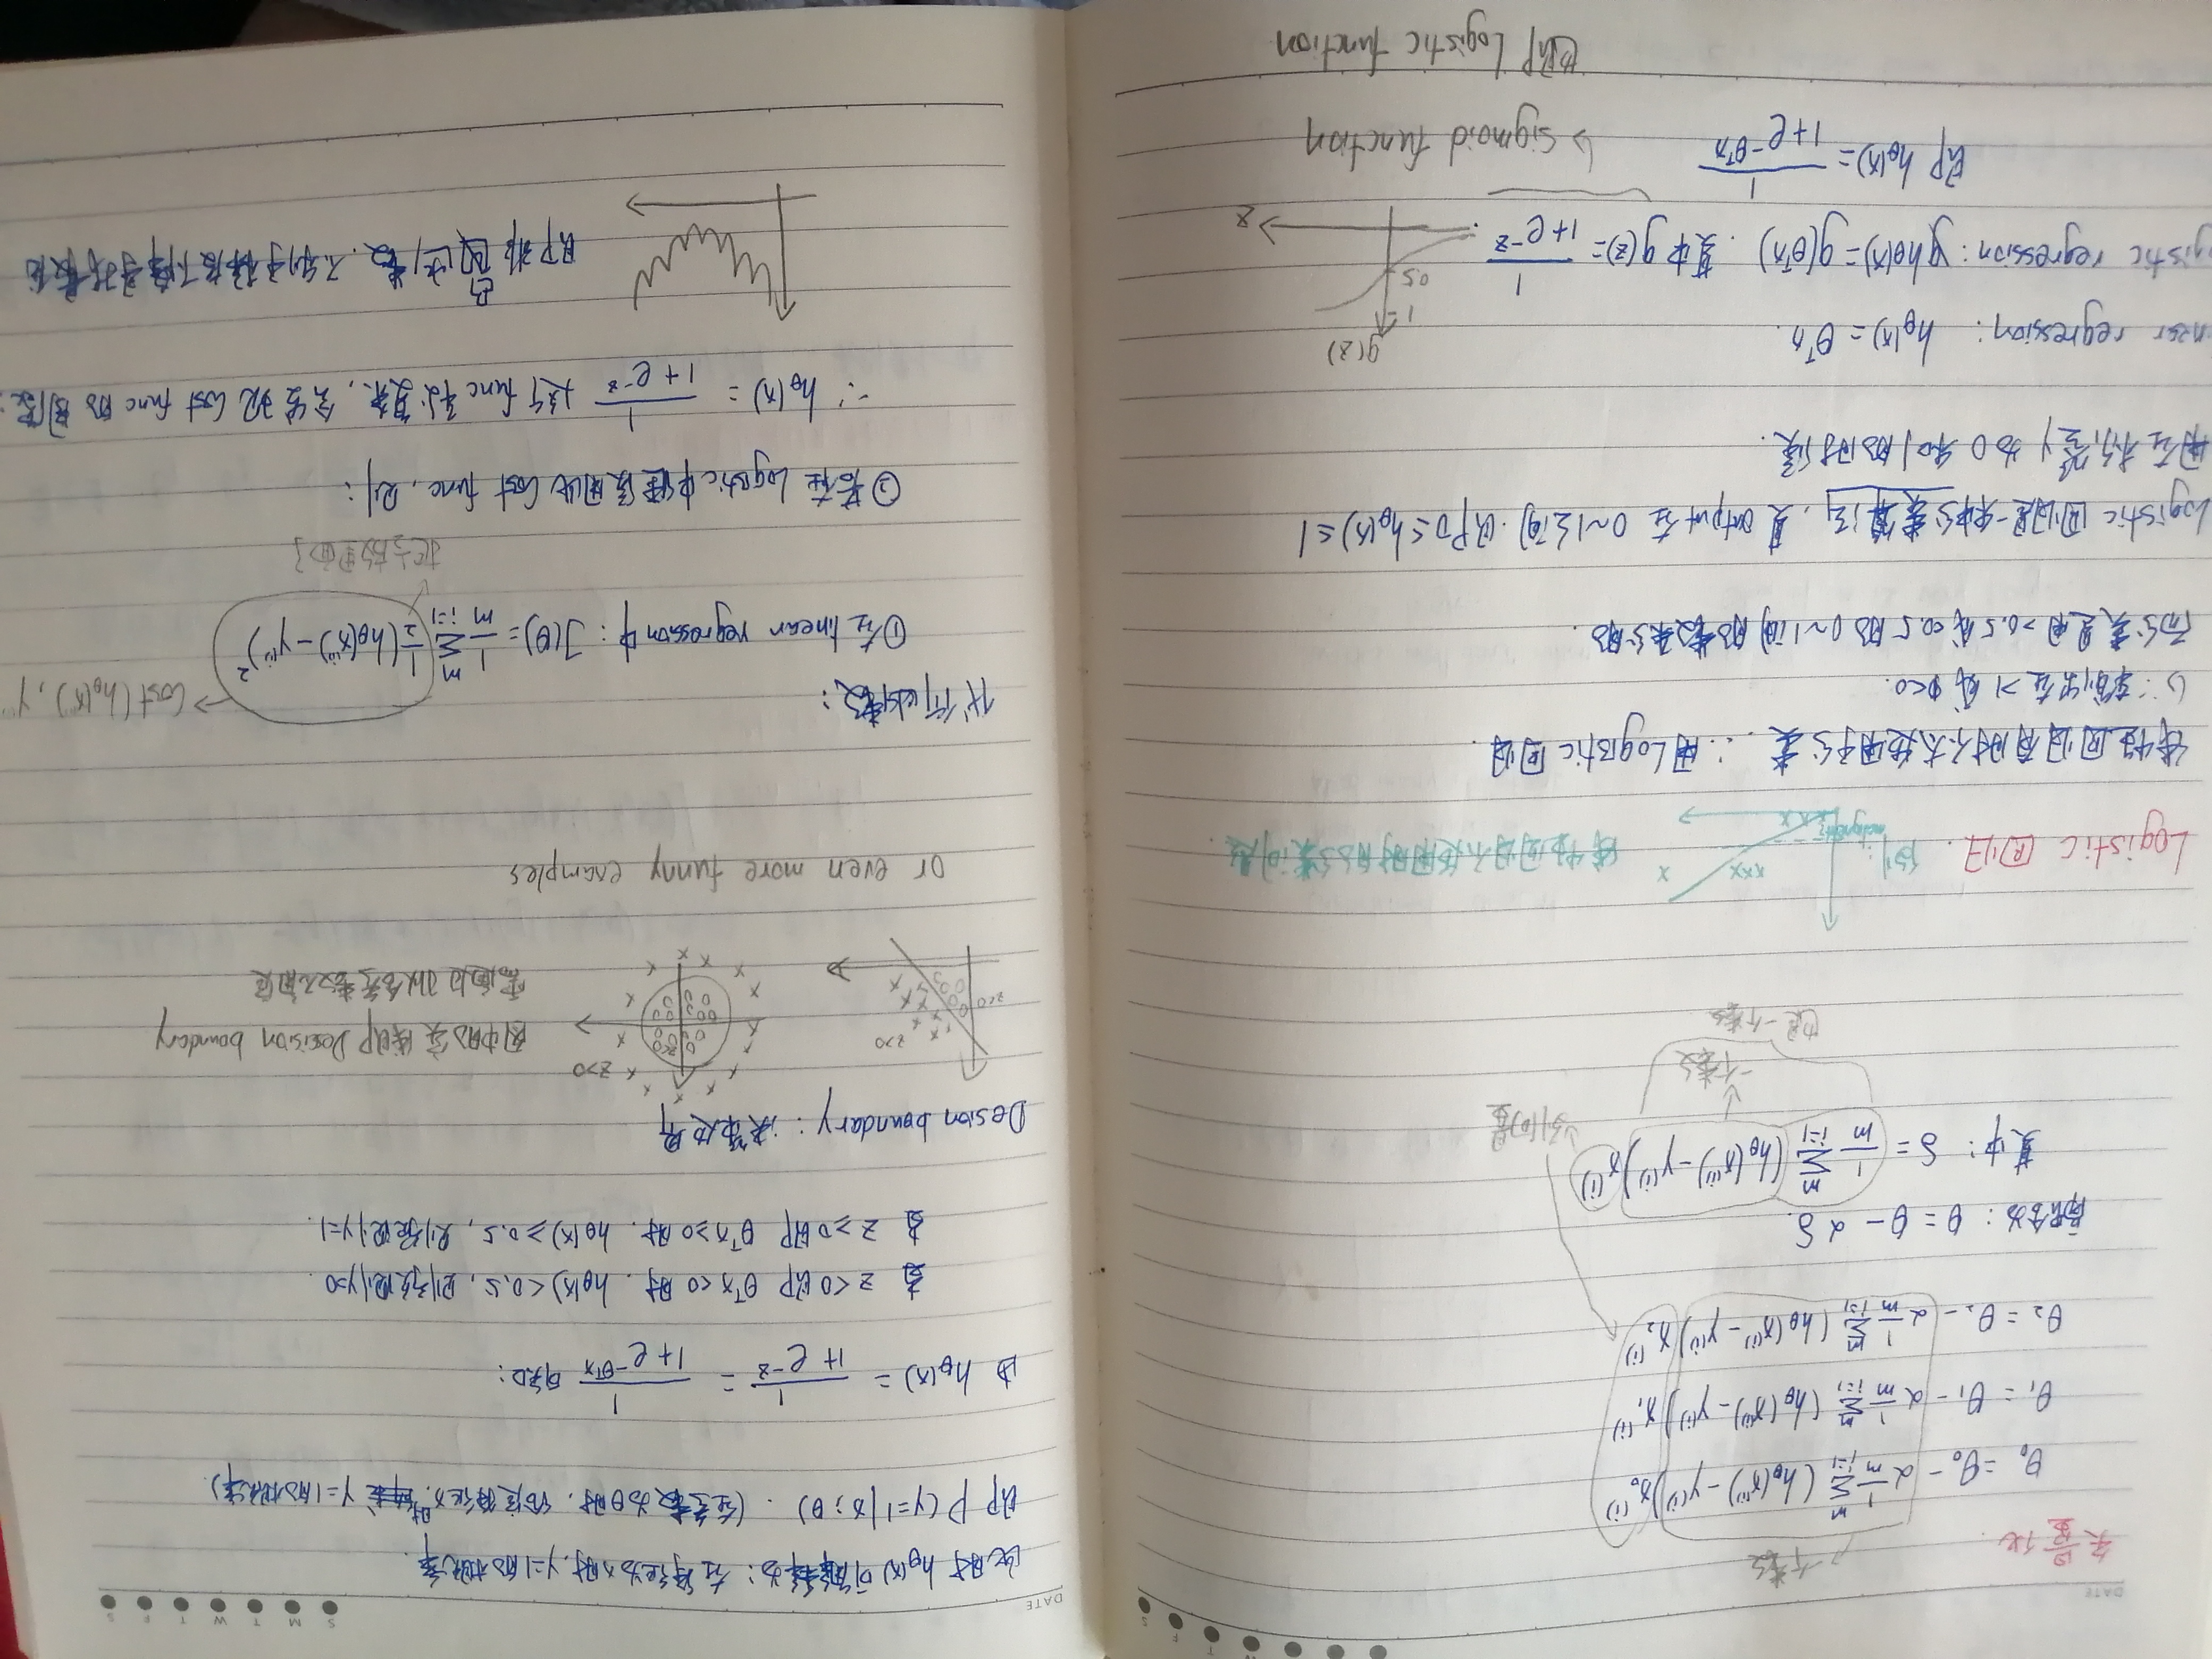 DATE
向量化
一个数
θ₀ = θ₀ - α 1/m Σᵢ₌₁ᵐ (hθ(x⁽ⁱ⁾) - y⁽ⁱ⁾) x₀⁽ⁱ⁾
θ₁ = θ₁ - α 1/m Σᵢ₌₁ᵐ (hθ(x⁽ⁱ⁾) - y⁽ⁱ⁾) x₁⁽ⁱ⁾
θ₂ = θ₂ - α 1/m Σᵢ₌₁ᵐ (hθ(x⁽ⁱ⁾) - y⁽ⁱ⁾) x₂⁽ⁱ⁾
θ = θ - αδ
其中: δ = 1/m Σᵢ₌₁ᵐ (hθ(x⁽ⁱ⁾) - y⁽ⁱ⁾) x⁽ⁱ⁾
列向量
一个数
也是一个数
Logistic 回归.
例:
线性回归不适用时的分类问题.
线性回归有时不太适用于分类. ∴用Logistic 回归
在 >1 或 <0.
而分类是用 >0.5 或 <0.5 的 0~1间的数来分的.
Logistic 回归是一种分类算法, 且 output 在 0~1之间. 即 0≤hθ(x)≤1
用在标签 y 为 0 和 1 的时候.
regression: hθ(x) = θᵀx.
g(z)
1
0.5
z
gistic regression: hθ(x) = g(θᵀx). 其中 g(z) = 1/(1+e⁻ᶻ)
即 hθ(x) = 1/(1+e^(-θᵀx))
→ Sigmoid function
也即 Logistic function
DATE
S M T W T F S
此时 hθ(x) 可解释为: 在特征为x时, y=1的概率.
即 P(y=1|x;θ). (在参数为θ时, 给定特征x时, y=1的概率)
由 hθ(x) = 1/(1+e⁻ᶻ) = 1/(1+e^(-θᵀx)) 可知:
当 z<0 即 θᵀx<0 时, hθ(x)<0.5, 则预测y=0.
当 z≥0 即 θᵀx≥0 时, hθ(x)≥0.5, 则预测y=1.
Desion boundary: 决策边界
z<0
z>0
z<0
z>0
图中的实线即 Decision boundary
or even more funny examples
代价函数:
①在 linear regression中: J(θ) = 1/m Σᵢ₌₁ᵐ 1/2 (hθ(x⁽ⁱ⁾) - y⁽ⁱ⁾)²
→ Cost(hθ(x), y
②若在 Logistic 中继续用此 Cost func, 则:
∵ hθ(x) = 1/(1+e⁻ᶻ) 这个 func 非线性, 会出现 Cost func 的图像:
即非凸函数. 不利于梯度下降寻找最